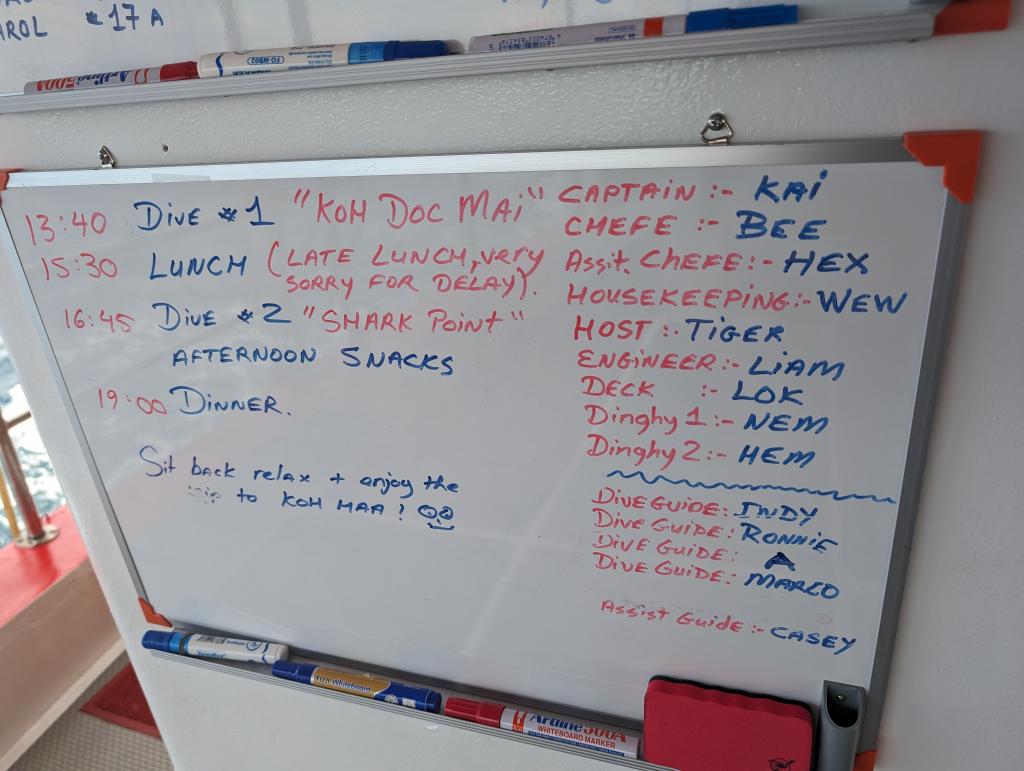 AROL #17 A
Artline 500A
MARKER
FO-WB02
13:40 DIVE #1 "KOH DOC MAI"
15:30 LUNCH (LATE LUNCH, very
SORRY FOR DELAY).
16:45 DIVE #2 "SHARK POINT"
AFTERNOON SNACKS
19:00 DINNER.
Sit back relax + enjoy the
to KOH HAA!
CAPTAIN :- KAI
CHEFE :- BEE
Assit. CHEFE:- HEX
HOUSEKEEPING:- WEW
HOST :- TIGER
ENGINEER:- LIAM
DECK :- LOK
Dinghy 1:- NEM
Dinghy 2:- HEM
DIVE GUIDE: INDY
DIVE GUIDE: RONNIE
DIVE GUIDE: A
DIVE GUIDE: MARCO
Assist Guide :- CASEY
FUJI-Whiteboard
Artline 500A
WHITEBOARD MARKER